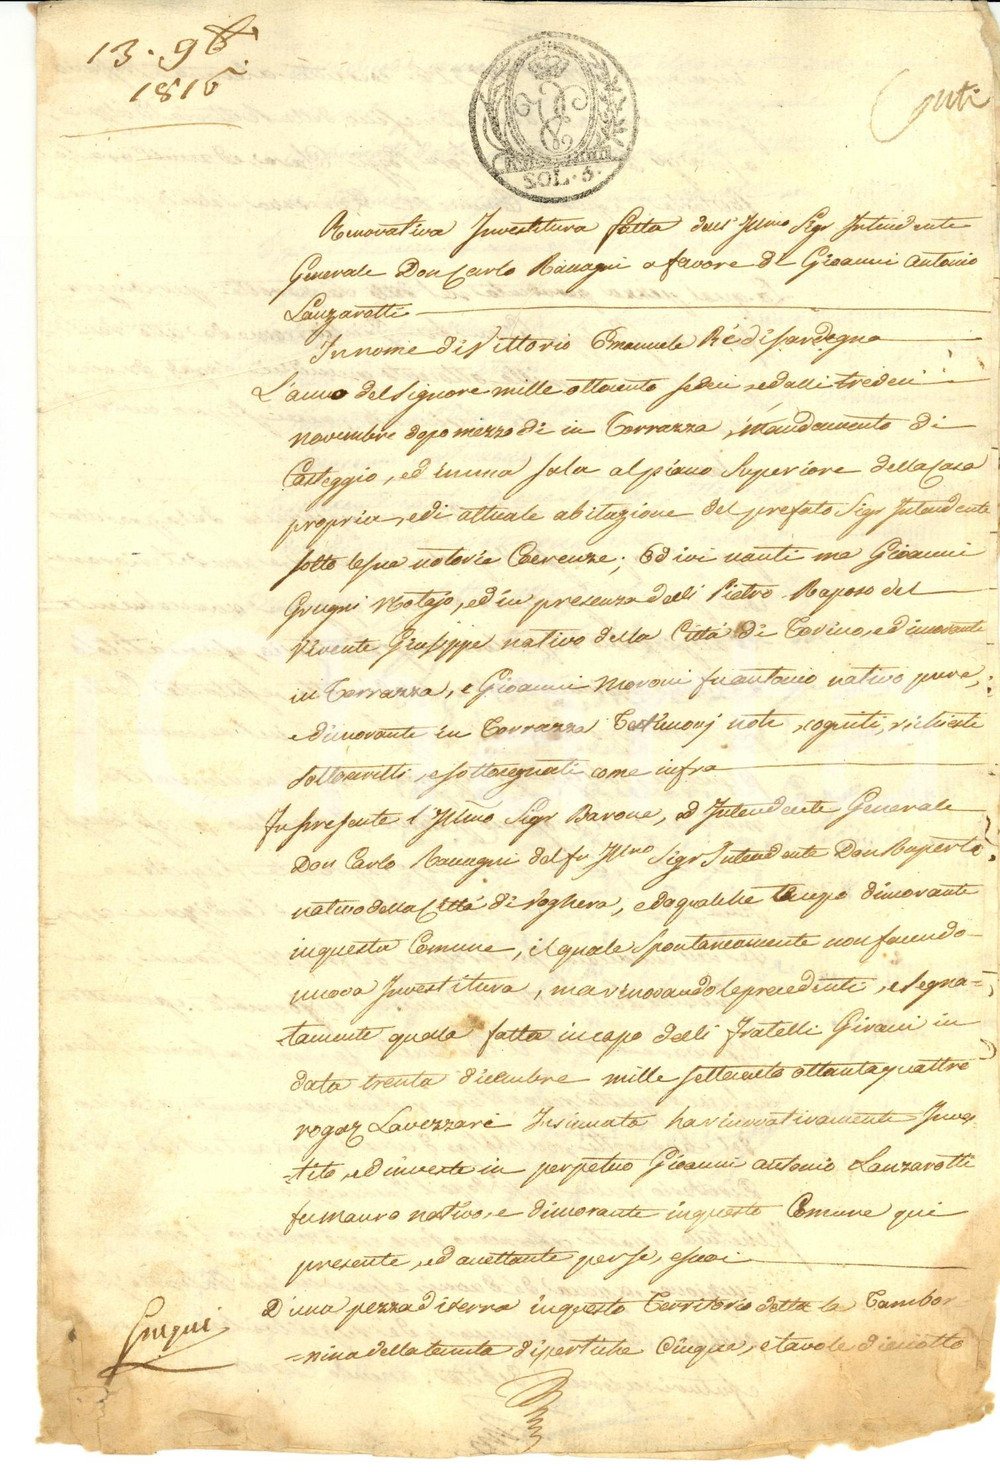 13. 9b.
1816
Conti
SOL. 5.
Renovativa Investitura fatta dall'Illmo Sigr Intendente
Generale Don Carlo Ravagni a favore di Gioanni Antonio
Lanzarotti
In nome di Vittorio Emanuele Ré di Sardegna
L'anno del Signore mille ottocento sedeci ed alli tredeci
novembre dopo mezzo dì in Torrazza, mandamento di
Casteggio, ed in una sala al piano Superiore della Casa
propria, e di attuale abitazione del prefato Sigr Intendente
sotto le sue notorie Coerenze; Ed ivi nanti me Gioanni
Grugni Notajo, ed in presenza delli Pietro Raposo del
vivente Giuseppe nativo della Città di Torino, ed imorante
in Torrazza, e Gioanni Moroni fu antonio nativo pure,
e dimorante in Torrazza Testimonj noti, cogniti, richiesti
sottoscritti, e sottosegnati come infra
Fu presente l'Illmo Sigr Barone, ed Intendente Generale
Don Carlo Ravagni del fu Illmo Sigr Intendente Don Ruperto
nativo della Città di Voghera, e da qualche tempo dimorante
in questa Comune, il quale spontaneamente non facendo
nuova Investitura, ma rinovando le precedenti, e segna=
=tamente quella fatta in capo delli fratelli Girani in
data trenta dicembre mille settecento ottanta quattro
rogaz Lavezzari Insinuata ha rinovativamente Inves
=tito, ed investe in perpetuo Gioanni Antonio Lanzarotti
fu mauro nativo, e dimorante in questo Comune qui
presente, ed accettante per se, e suoi
D'una pezza di terra in questo Territorio detta la Tambor=
=nina della tenuta di pertiche Cinque, e tavole dieciotto
Grugni